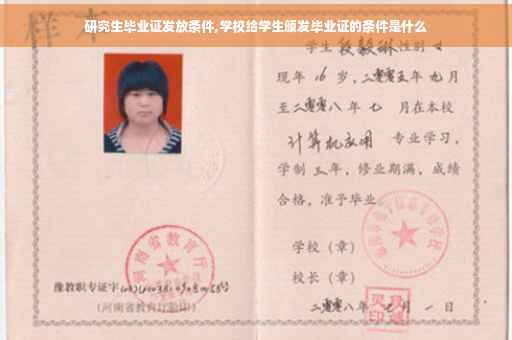 研究生毕业证发放条件,学校给学生颁发毕业证的条件是什么
样本
学生 段毅琳 性别 女
现年 16 岁,二零零五年 九月
至二零零八年 七 月在本校
计算机应用 专业学习,
学制 三 年,修业期满,成绩
合格,准予毕业
学校(章)
校长(章)
二零零八年 七 月 一 日
河南省教育厅
豫教职专证字
(河南省教育厅验印)